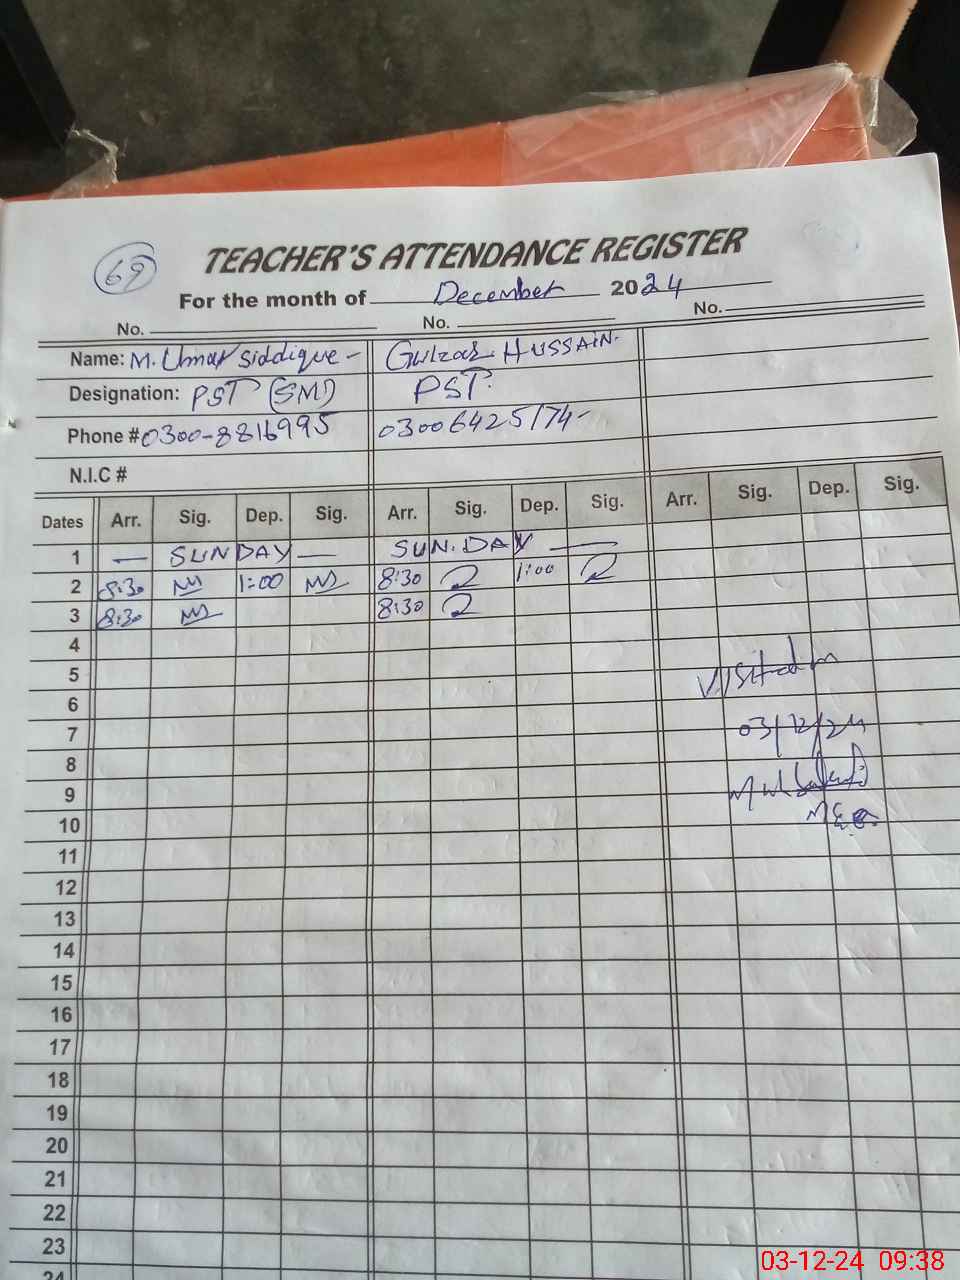 69
TEACHER'S ATTENDANCE REGISTER
For the month of December 2024
No. No. No.
Name: M. Umar Siddique - Gulzar HUSSAIN.
Designation: PST (SMI) PST.
Phone # 0300-8816995 03006425174-
N.I.C #
Dates Arr. Sig. Dep. Sig. Arr. Sig. Dep. Sig. Arr. Sig. Dep. Sig.
1 — SUNDAY — SUN.DAY —
2 8:30 1:00 8:30 1:00
3 8:30 8:30
4
5
6
7 03/12/24
8
9
10
11
12
13
14
15
16
17
18
19
20
21
22
23
24
03-12-24 09:38